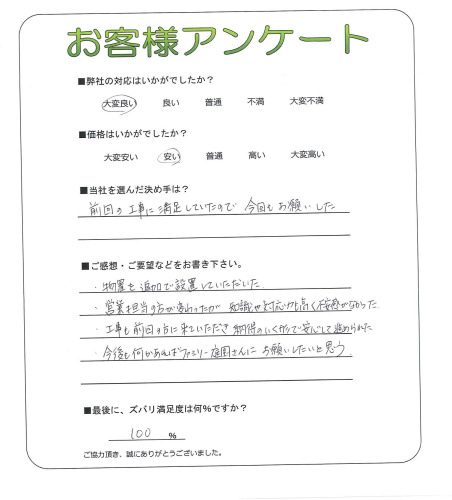 お客様アンケート
■弊社の対応はいかがでしたか?
大変良い 良い 普通 不満 大変不満
■価格はいかがでしたか?
大変安い 安い 普通 高い 大変高い
■当社を選んだ決め手は?
前回の工事に満足していたので 今回もお願いした
■ご感想・ご要望などをお書き下さい。
・物置も追加で設置していただいた
・営業担当の方が変わったが 知識や対応力も高く不安感がなかった
・工事も前回の方に来ていただき 納得のいく形で安心して進められた
・今後も何かあればファミリー庭園さんに お願いしたいと思う
■最後に、ズバリ満足度は何%ですか?
100 %
ご協力頂き、誠にありがとうございました。